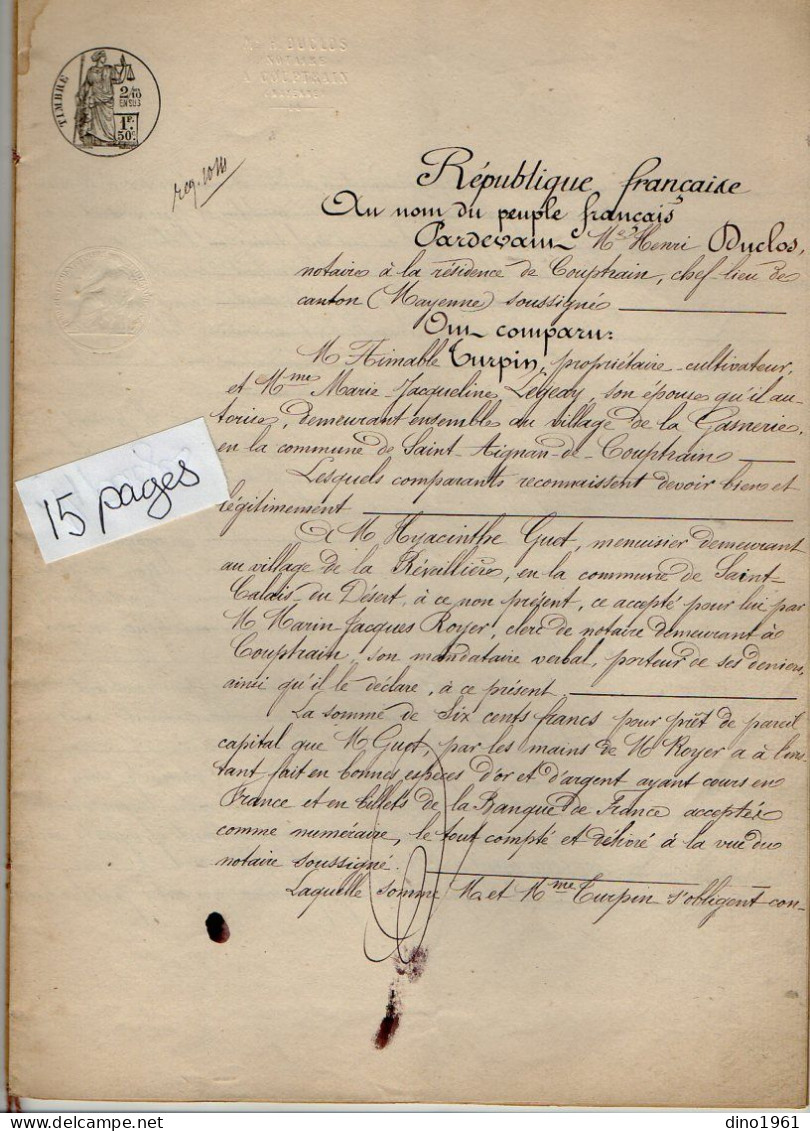 Me H. DUCLOS
NOTAIRE
A COUPTRAIN
TIMBRE
2/10
EN SUS
1F.
50c.
République française
Au nom du peuple français
Pardevant Me Henri Duclos,
notaire à la résidence de Couptrain, chef-lieu de
canton (Mayenne) soussigné
Ont comparu:
M Aimable Turpin, propriétaire-cultivateur,
et Mme Marie-Jacqueline Legeay, son épouse qu'il au-
torise, demeurant ensemble au village de la Gasnerie,
en la commune de Saint-Aignan-de-Couptrain
Lesquels comparants reconnaissent devoir bien et
légitimement
15 pages
A M Hyacinthe Guet, menuisier demeurant
au village de la Révaillière, en la commune de Saint-
Calais-du Désert, à ce non présent, ce accepté pour lui par
M Marin-Jacques Royer, clerc de notaire demeurant à
Couptrain, son mandataire verbal, porteur de ses deniers,
ainsi qu'il le déclare, à ce présent.
La somme de Six cents francs pour prêt de pareil
capital que M Guet, par les mains de M Royer a à l'ins-
tant fait en bonnes espèces d'or et d'argent ayant cours en
France et en billets de la Banque de France acceptés
comme numéraire, le tout compté et délivré à la vue du
notaire soussigné.
Laquelle somme M et Mme Turpin s'obligent con-
dino1961